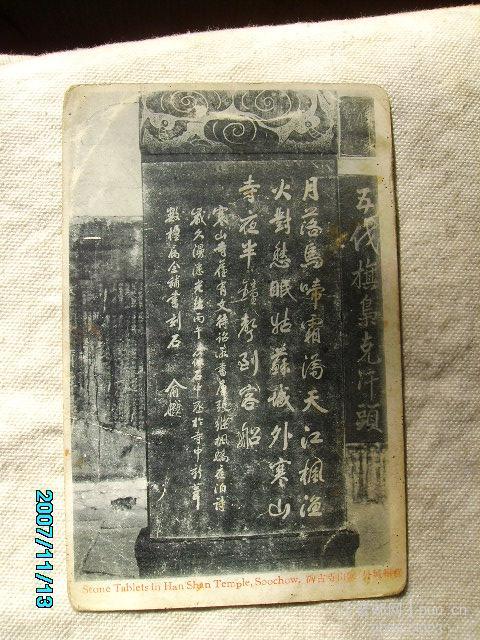 五代旗梟克汗頭
月落烏啼霜滿天江楓漁
火對愁眠姑蘇城外寒山
寺夜半鐘聲到客船
寒山寺舊有文待詔所書唐張繼楓橋夜泊詩
歲久漫漶光緒丙午筱石中丞於寺中新葺
數楹屬余補書刻石 俞樾
Stone Tablets in Han Shan Temple, Soochow, 碑古寺山寒
2007/11/13